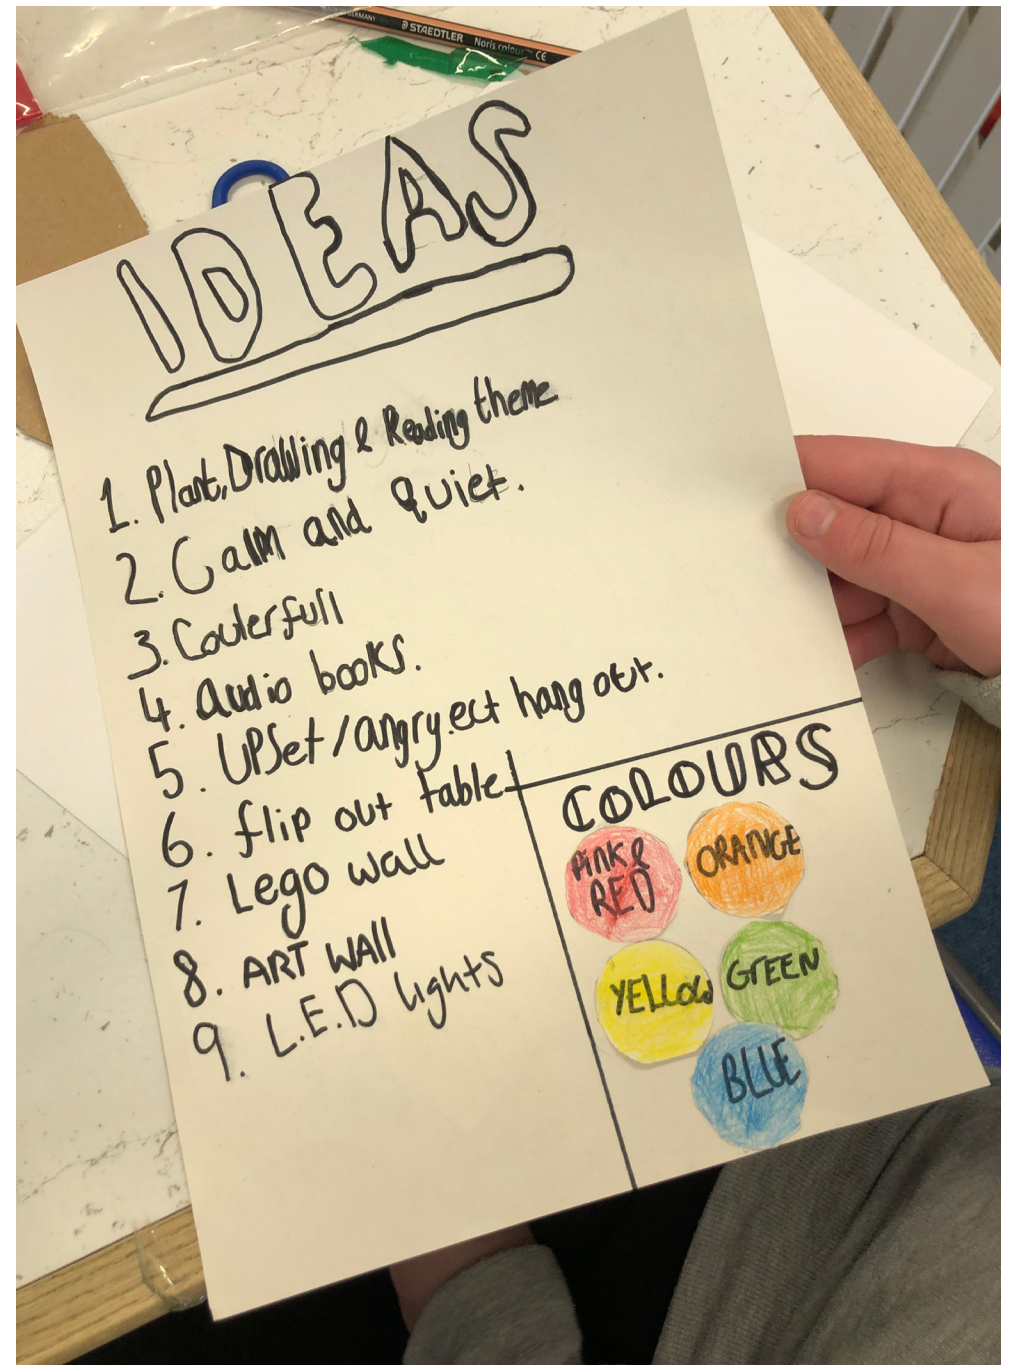 GERMANY
STAEDTLER Noris colour CE
IDEAS
1. Plant, Drawing & Reading theme
2. Calm and quiet.
3. Coulerfull
4. audio books.
5. UPSet/angry.ect hang out.
6. flip out table
7. Lego wall
8. ART WALL
9. L.E.D lights
COLOURS
PINK &
RED
ORANGE
YELLOW
GREEN
BLUE